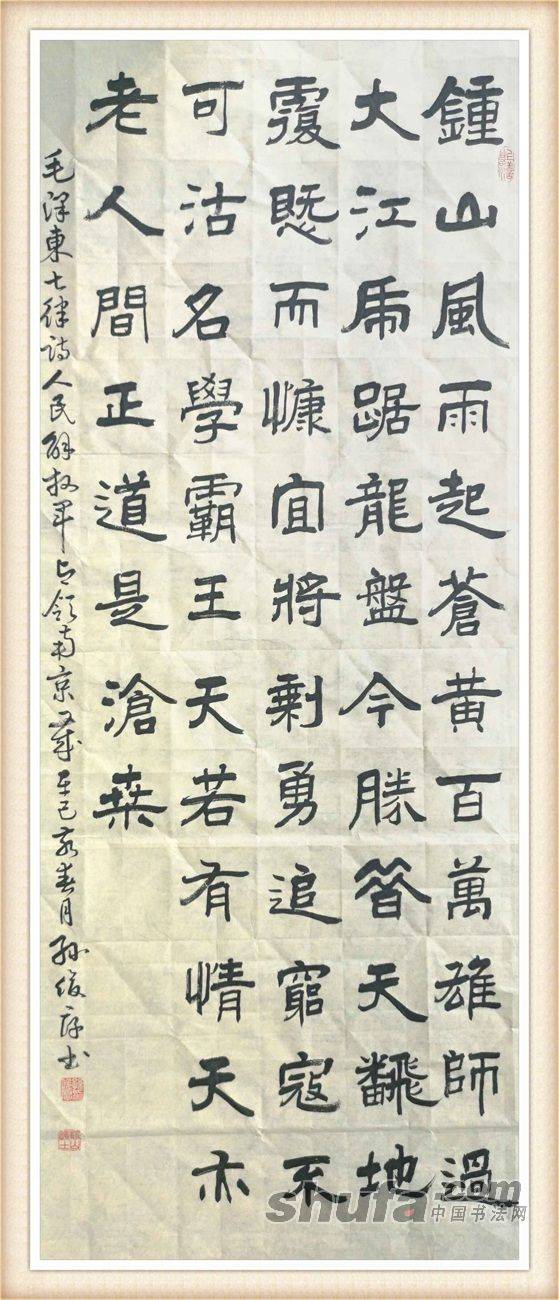 鍾山風雨起蒼黄百萬雄師過
大江虎踞龍盤今勝昔天飜地
覆慨而慷宜將剩勇追窮寇不
可沽名學霸王天若有情天亦
老人間正道是滄桑
毛泽東七律诗人民解放军占领南京歲在己亥春月孙俊书
shufa.com
中国书法网